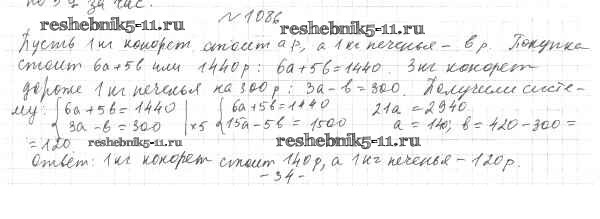 по 5 д за час.
reshebnik5-11.ru №1086 reshebnik5-11.ru
Пусть 1 кг конфет стоит а р, а 1 кг печенья – в р. Покупка
стоит 6а+5в или 1440 р: 6а+5в=1440. 3 кг конфет
дороже 1 кг печенья на 300 р: 3а-в=300. Получили систе-
му: {6а+5в=1440 {6а+5в=1440 21а=2940
3а-в=300 |×5 15а-5в=1500 а=140; в=420-300=
=120 reshebnik5-11.ru reshebnik5-11.ru
Ответ: 1 кг конфет стоит 140 р, а 1 кг печенья – 120 р.
-34-